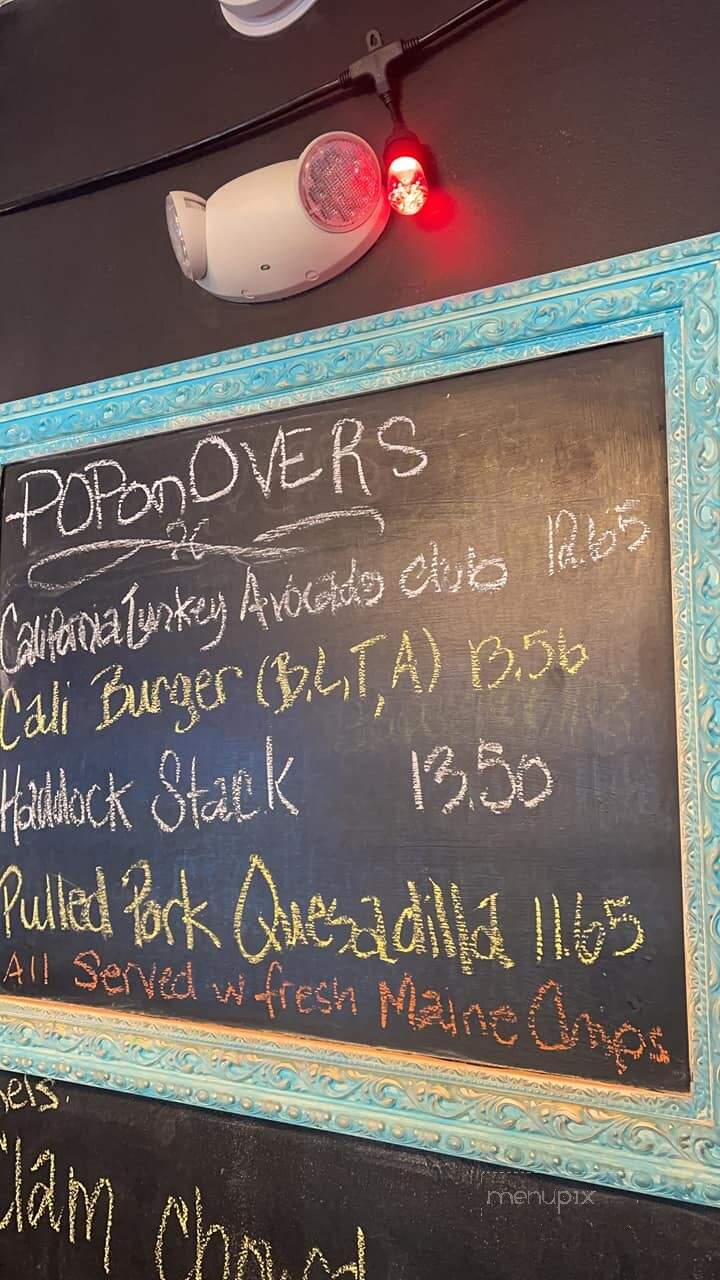 POPonOVERS
California Turkey Avocado Club 12.65
Cali Burger (B,L,T,A) 13.56
Haddock Stack 13.50
Pulled Pork Quesadilla 11.65
All Served w fresh Maine Chips
els.
Clam Chowd
menupix